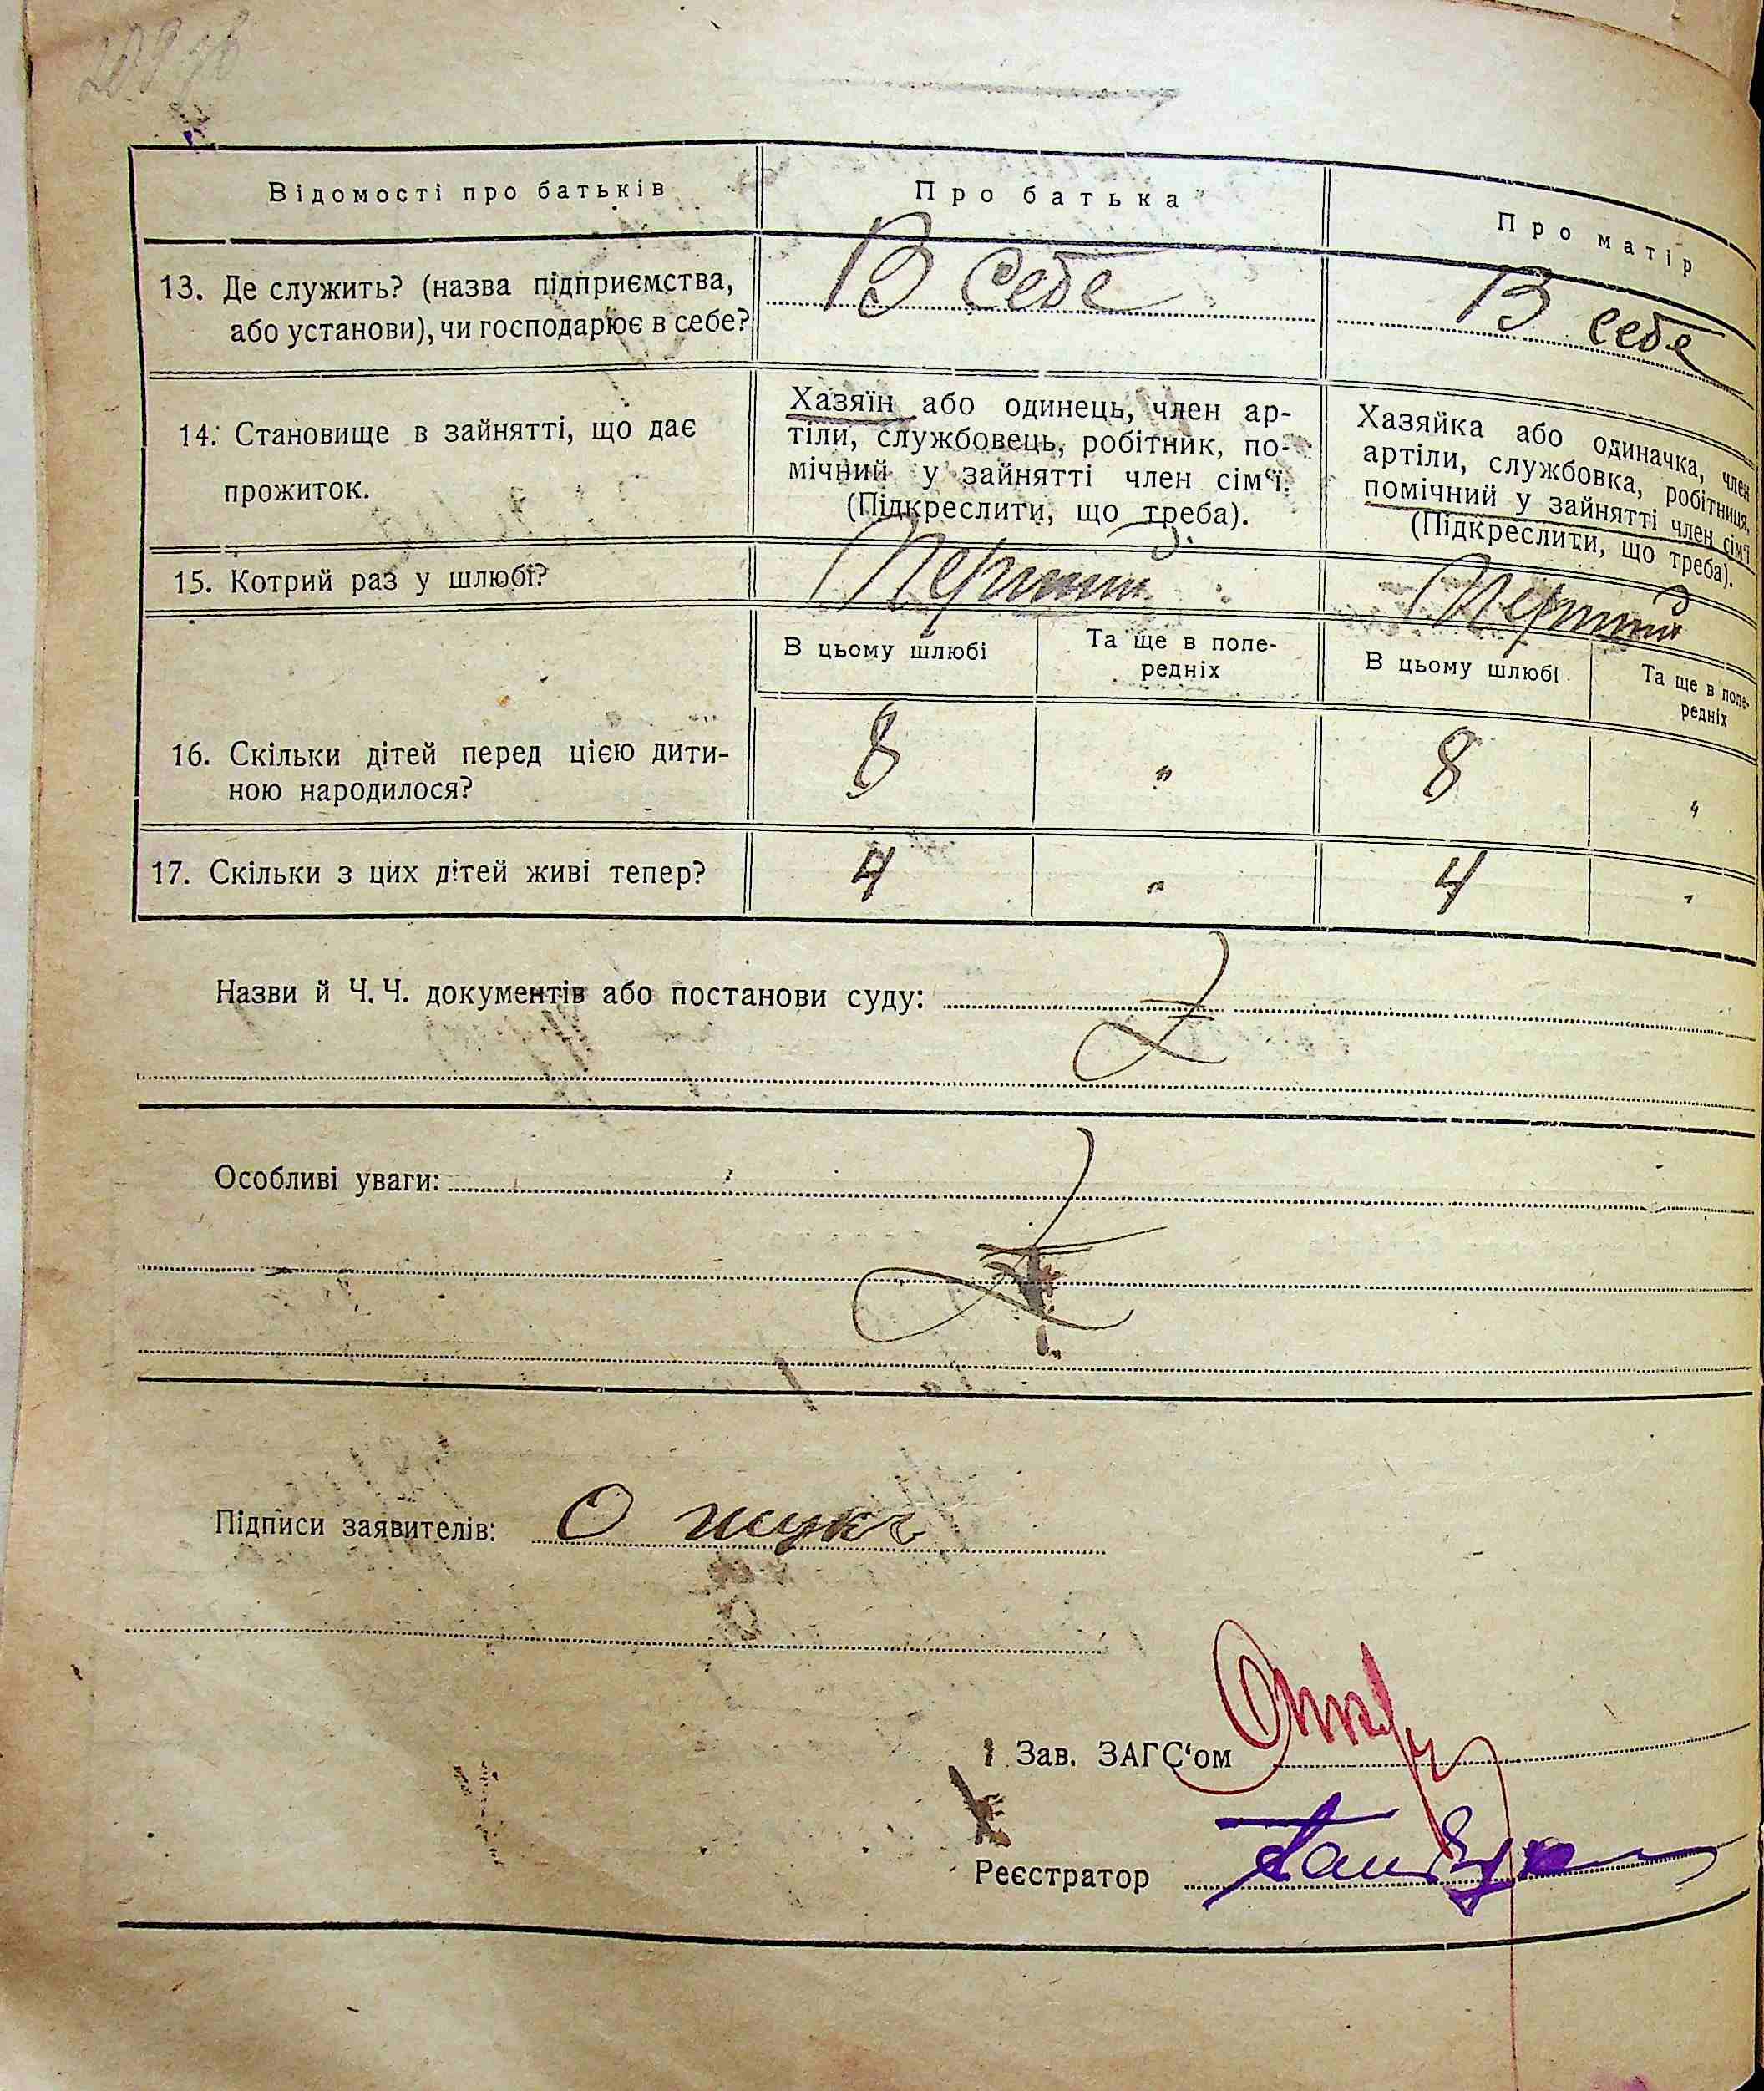 Відомості про батьків Про батька Про матір
13. Де служить? (назва підприємства, В себе В себе
або установи), чи господарює в себе?
14. Становище в зайнятті, що дає
прожиток.
Хазяїн або одинець, член ар-
тіли, службовець, робітник, по-
мічний у зайнятті член сім‘ї.
(Підкреслити, що треба).
Хазяйка або одиначка, член
артіли, службовка, робітниця,
помічний у зайнятті член сім‘ї
(Підкреслити, що треба).
15. Котрий раз у шлюбі? Перший Перший
В цьому шлюбі Та ще в попе-
редніх
В цьому шлюбі Та ще в попе-
редніх
16. Скільки дітей перед цією дити-
ною народилося? 8 " 8 "
17. Скільки з цих дітей живі тепер? 4 " 4 "
Назви й Ч. Ч. документів або постанови суду: Z
Особливі уваги: Z
Підписи заявителів: О жук
Зав. ЗАГС‘ом
Реєстратор